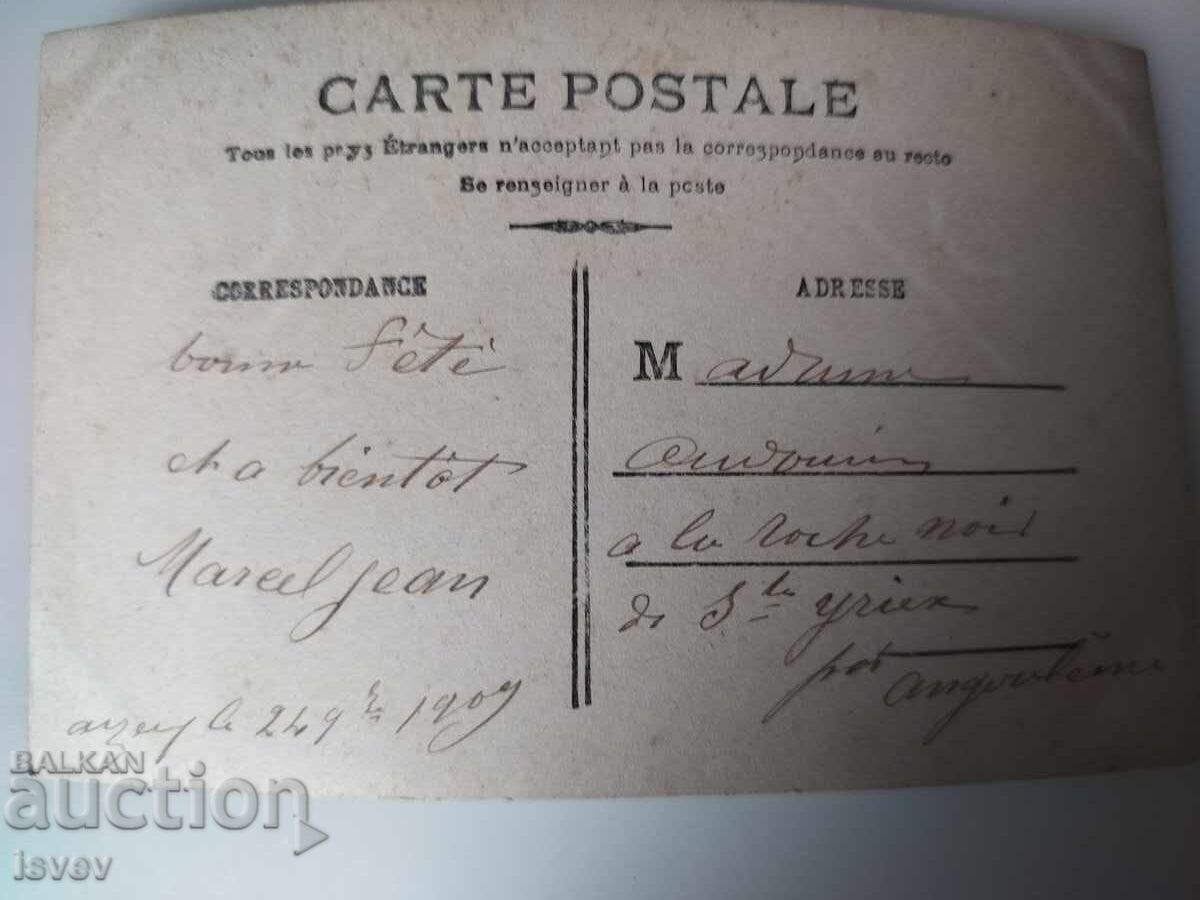 CARTE POSTALE
Tous les pays Étrangers n'acceptant pas la correspondance au recto
Se renseigner à la poste
CORRESPONDANCE
bonne fête
et a bientôt
Marcel Jean
le 24 9bre 1909
ADRESSE
Madame
Audouin
a la roche noir
de St yrieix
par angoulême
BALKAN
auction
isvev